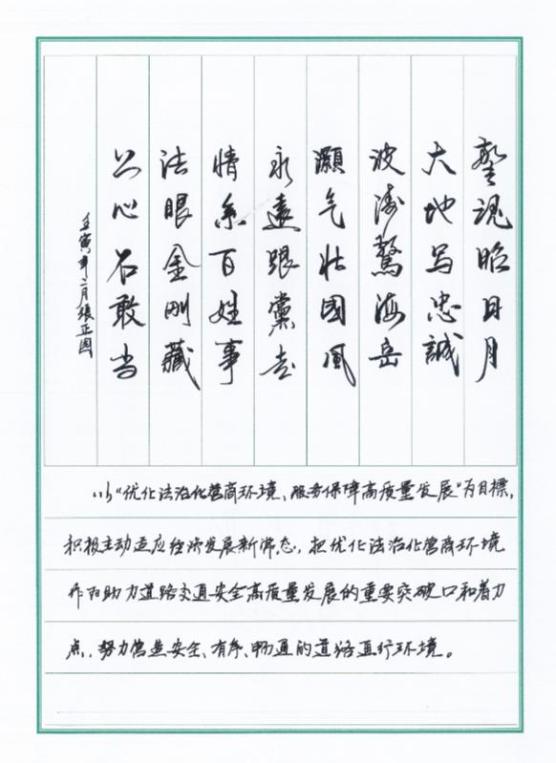 警魂昭日月
大地写忠誠
波涛驚海岳
灝气壮國風
永遠跟黨走
情系百姓事
法眼金刚藏
公心石敢当
壬寅年二月張正国
以“优化法治化营商环境、服务保障高质量发展”为目標,
积极主动适应经济发展新常态，把优化法治化营商环境
作为助力道路交通安全高质量发展的重要突破口和着力
点，努力营造安全、有序、畅通的道路通行环境。